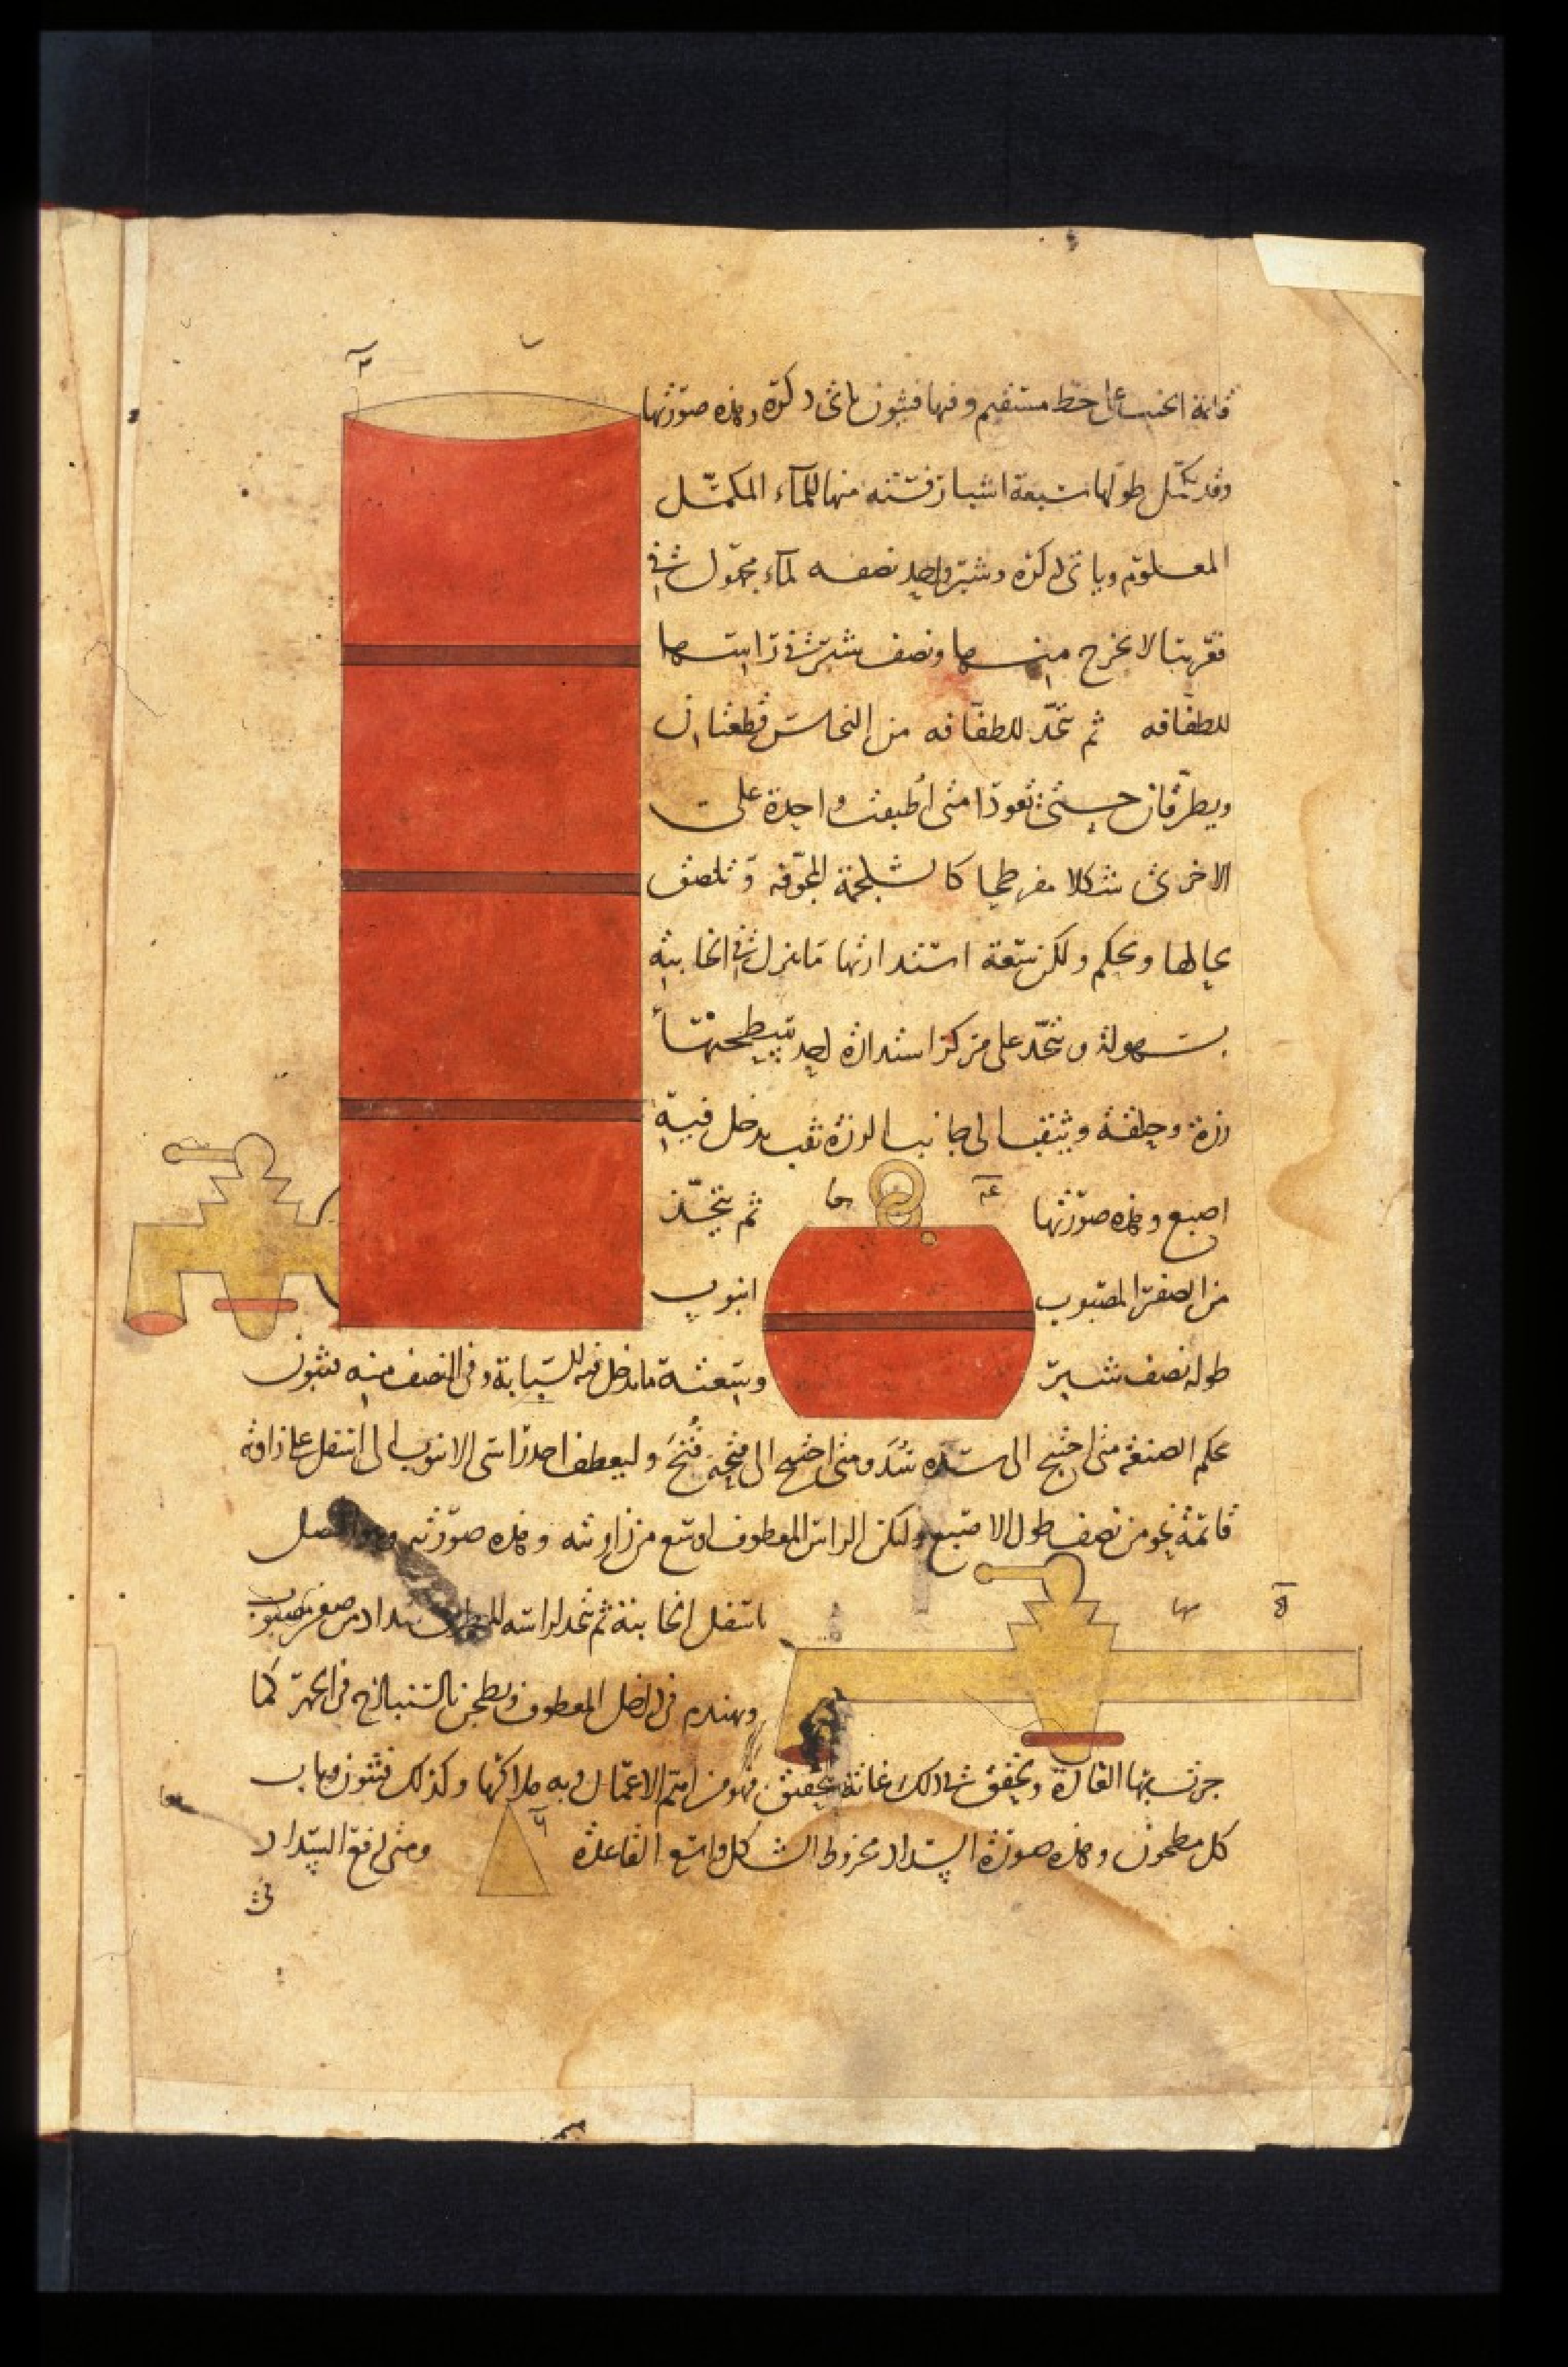 قائمة الجنب على خط مستقيم وفيها فيثون ياتى ذكره وهذه صورتها
وقد يكمل طولها سبعة اشبار فستة منها للماء المكمل
المعلوم وياتى ذكره وشبر واحد نصفه لماء مجهول فى
تقريبا لا يخرج منها ونصف شبر فى راسها
للطفافه ثم تتخذ للطفافه من النحاس قطعتان
ويطرقان حيث تعودا متى اطبقت واحدة على
الاخرى شكلا مفرطحا كالشلجمة المجوفه وتلصق
بحالها وتحكم ولكن سعة استدارتها ما ينزل فى الخابيه
بسهولة ويتخذ على مركز استدارة احد تسطيحتها
رزة وحلقة ويثقب الى جانب الرزة ثقب يدخل فيه
اصبع وهذه صورتها
ثم يتخذ
من الصفر المصبوب
انبوب
طوله نصف شبر
وسعته ما يدخل فيه السبابة وفى النصف منه فيثون
محكم الصنعة متى احتيج الى سده سد ومتى احتيج الى فتحه فتح وليعطف احد راسى الانبوب الى اسفل على زاوية
قائمة نحو من نصف طول الاصبع وليكن الراس المعطوف اوسع من زاويته وهذه صورته
باسفل الخابية ثم يتخذ لراسه سداد من صفر مصبوب
ويهندم فى داخل المعطوف ويطحن بالسنباذج فى الجهر كما
جرت بها العادة ويحقق فى ذلك غاية تحقيق فهو من اهم الاعمال وبه ملاكها وكذلك فيثون وباب
كل مطحون وهذه صورة السداد مخروط الشكل واسع القاعدة
ومتى رفع السداد
فى